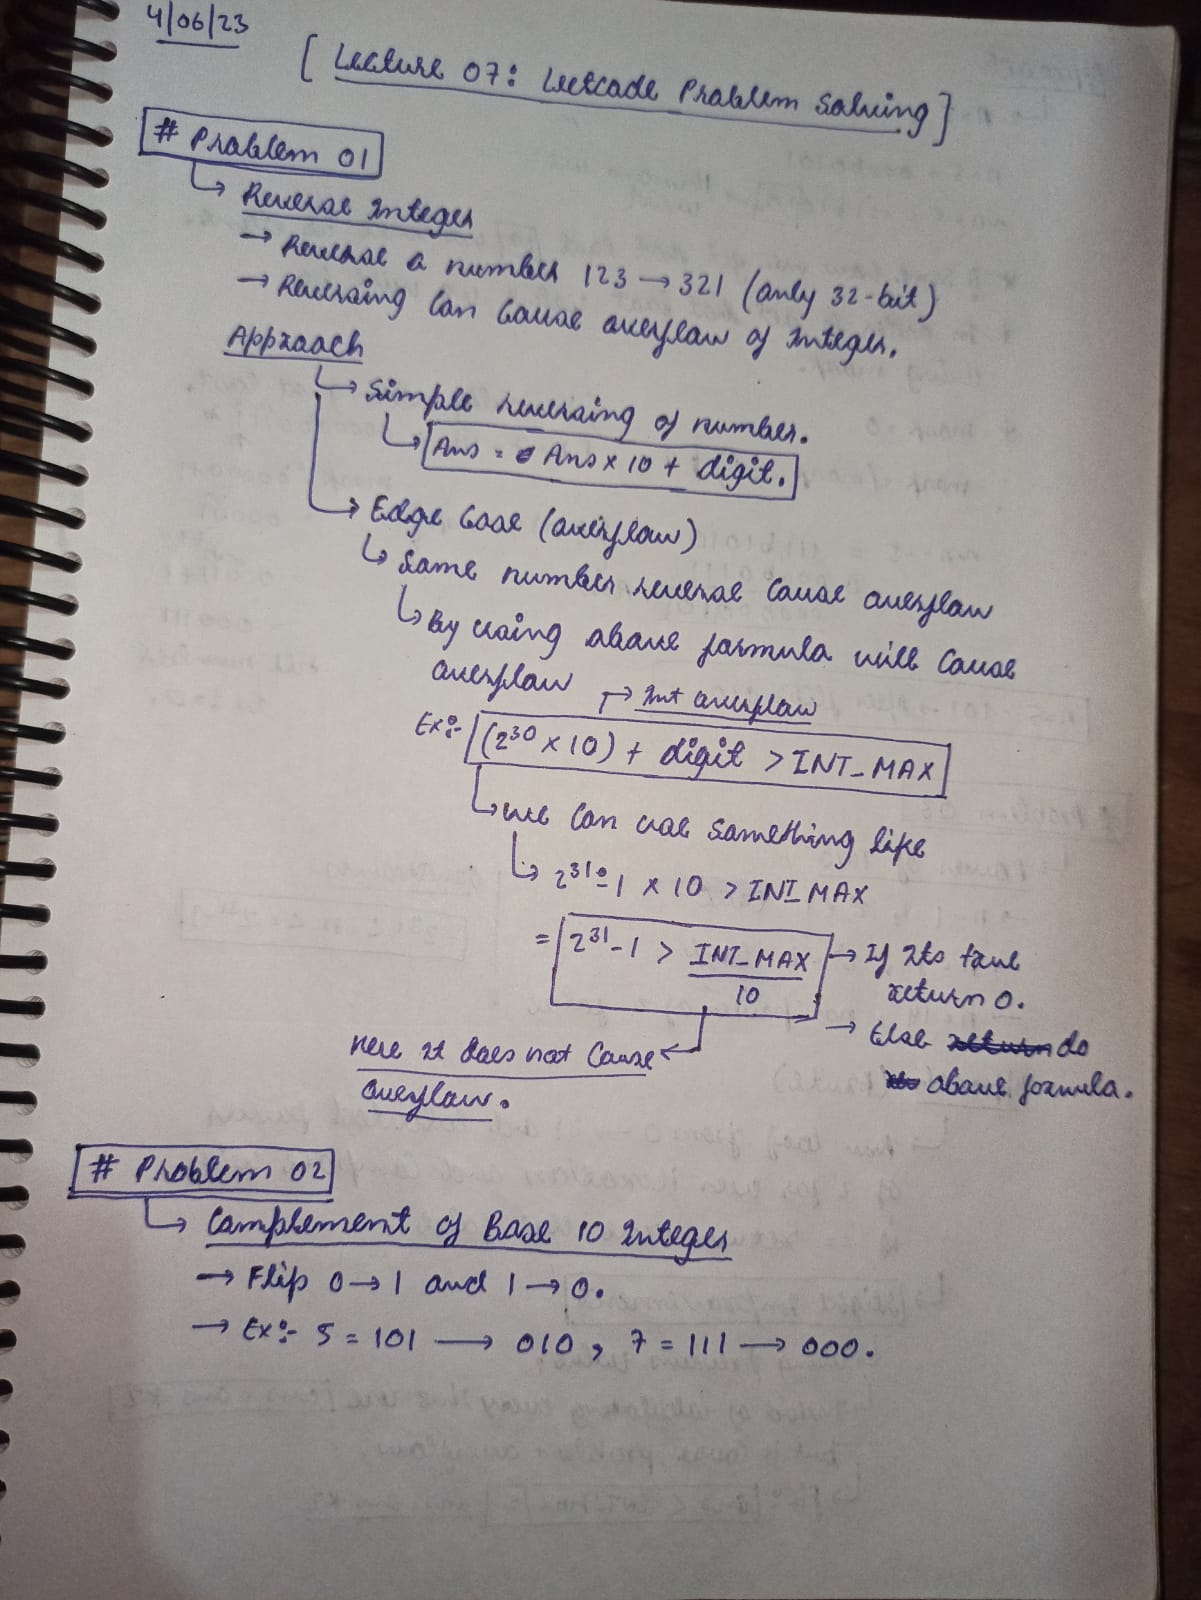 4/06/23
[ Lecture 07: Leetcode Problem Solving ]
# Problem 01
↳ Reverse Integer
→ Reverse a number 123 → 321 (only 32-bit)
→ Reversing can cause overflow of Integer.
Approach
↳ Simple reversing of number.
↳ Ans = Ans x 10 + digit.
↳ Edge Case (overflow)
↳ Some number reverse cause overflow
↳ By using above formula will cause
overflow
→ Int overflow
Ex:- (2^30 x 10) + digit > INT_MAX
↳ we can use something like
↳ 2^31-1 x 10 > INT_MAX
= 2^31-1 > INT_MAX/10 → If Its true
return 0.
→ Else do
above formula.
Here it does not cause
overflow.
# Problem 02
↳ Complement of Base 10 Integer
→ Flip 0→1 and 1→0.
→ Ex:- 5 = 101 → 010, 7 = 111 → 000.